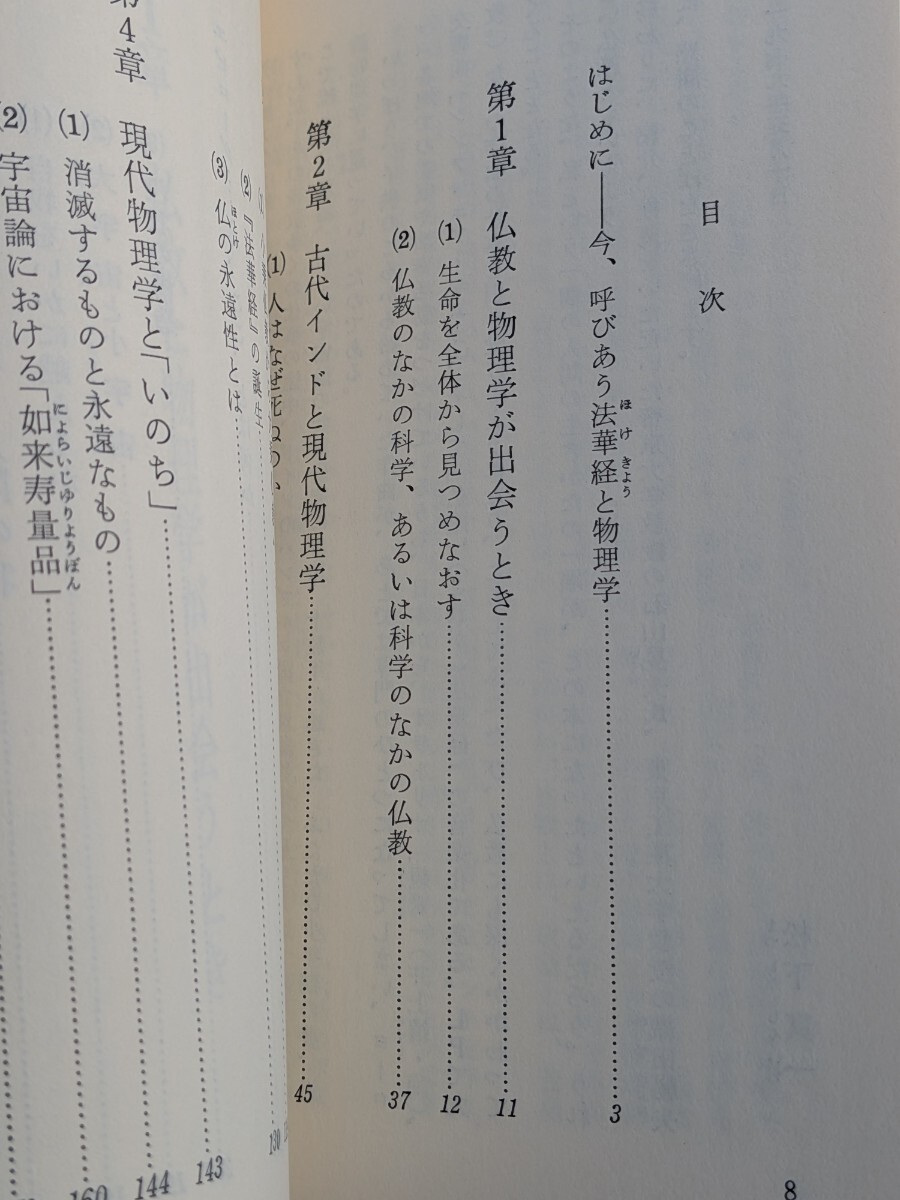 目次
はじめに――今、呼びあう法華経と物理学……3
第1章 仏教と物理学が出会うとき……11
(1) 生命を全体から見つめなおす……12
(2) 仏教のなかの科学、あるいは科学のなかの仏教……37
第2章 古代インドと現代物理学……45
(1) 人はなぜ死ぬのか
8
(2) 『法華経』の誕生……130
(3) 仏の永遠性とは……
第4章 現代物理学と「いのち」……143
(1) 消滅するものと永遠なもの……144
(2) 宇宙論における「如来寿量品」……160